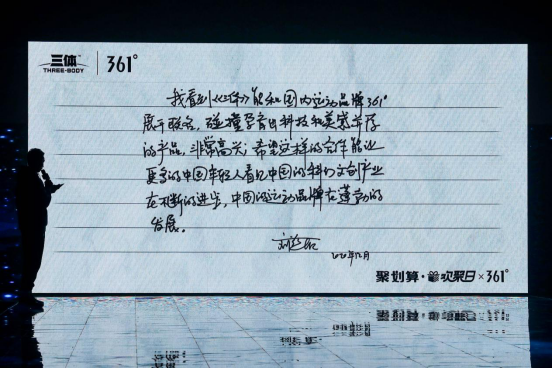 三体
THREE-BODY
361°
我看到《三体》能和国内运动品牌361°
展开联名，碰撞孕育出科技和美感并存
的产品，非常高兴；希望这样的合作能让
更多的中国年轻人看见中国的科幻文创产业
在不断的进步，中国的运动品牌在蓬勃的
发展。
刘慈欣
2020年12月
聚划算·欢聚日×361°